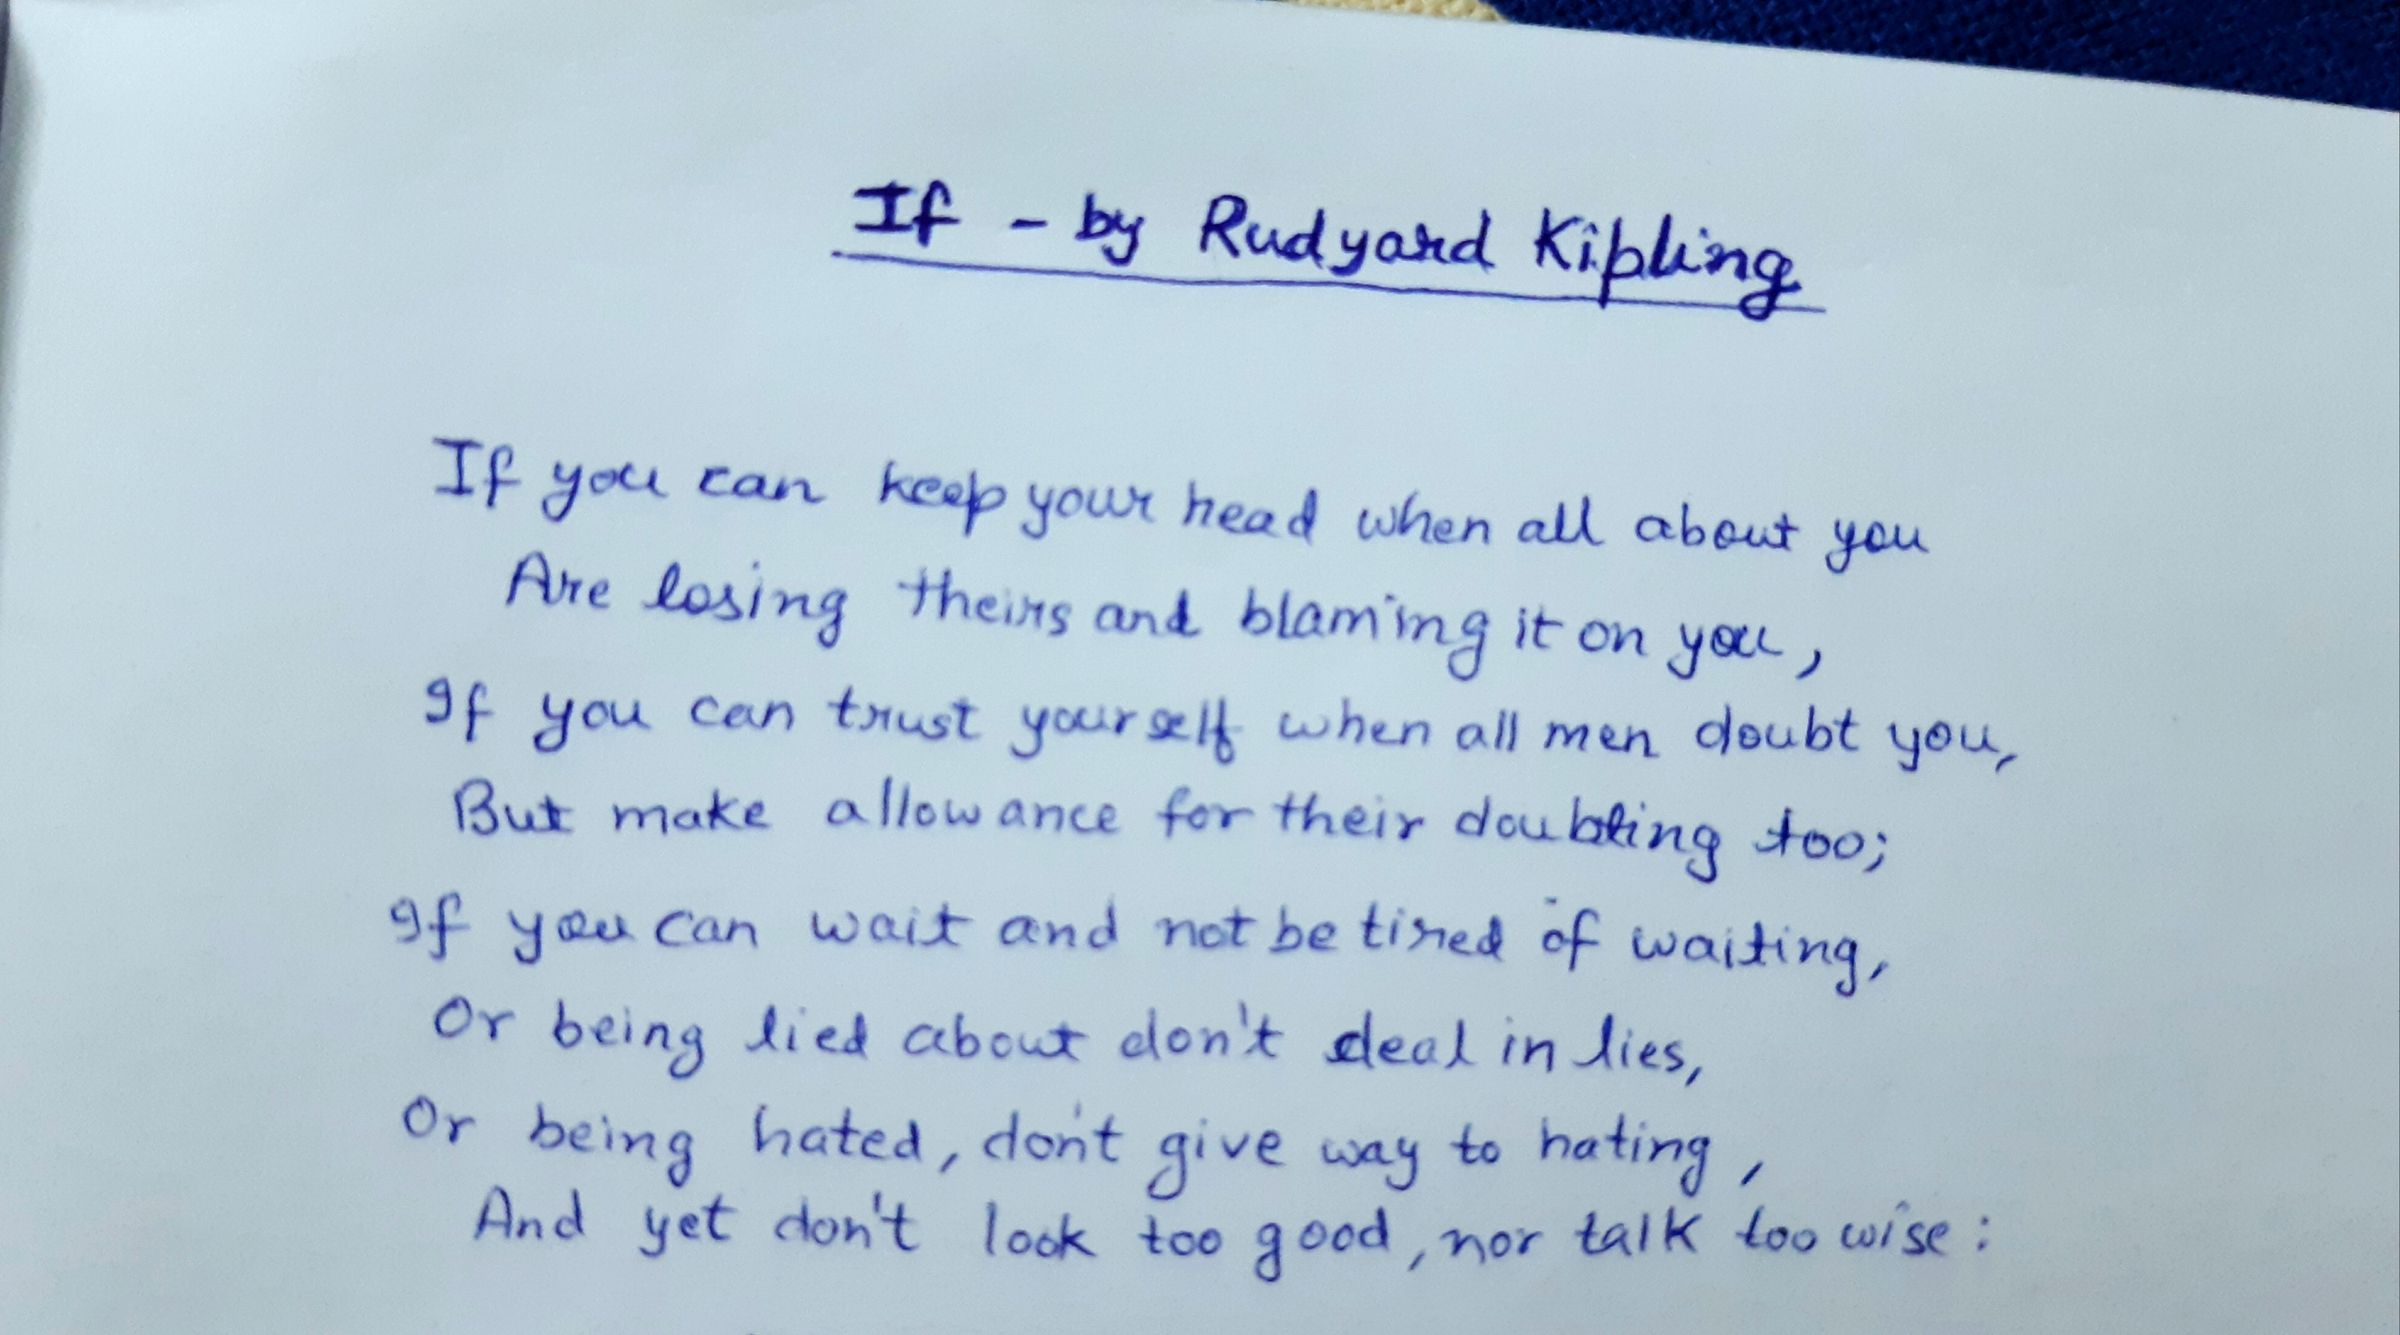 If - by Rudyard Kipling
If you can keep your head when all about you
Are losing theirs and blaming it on you,
If you can trust yourself when all men doubt you,
But make allowance for their doubting too;
If you can wait and not be tired of waiting,
Or being lied about don't deal in lies,
Or being hated, don't give way to hating,
And yet don't look too good, nor talk too wise: